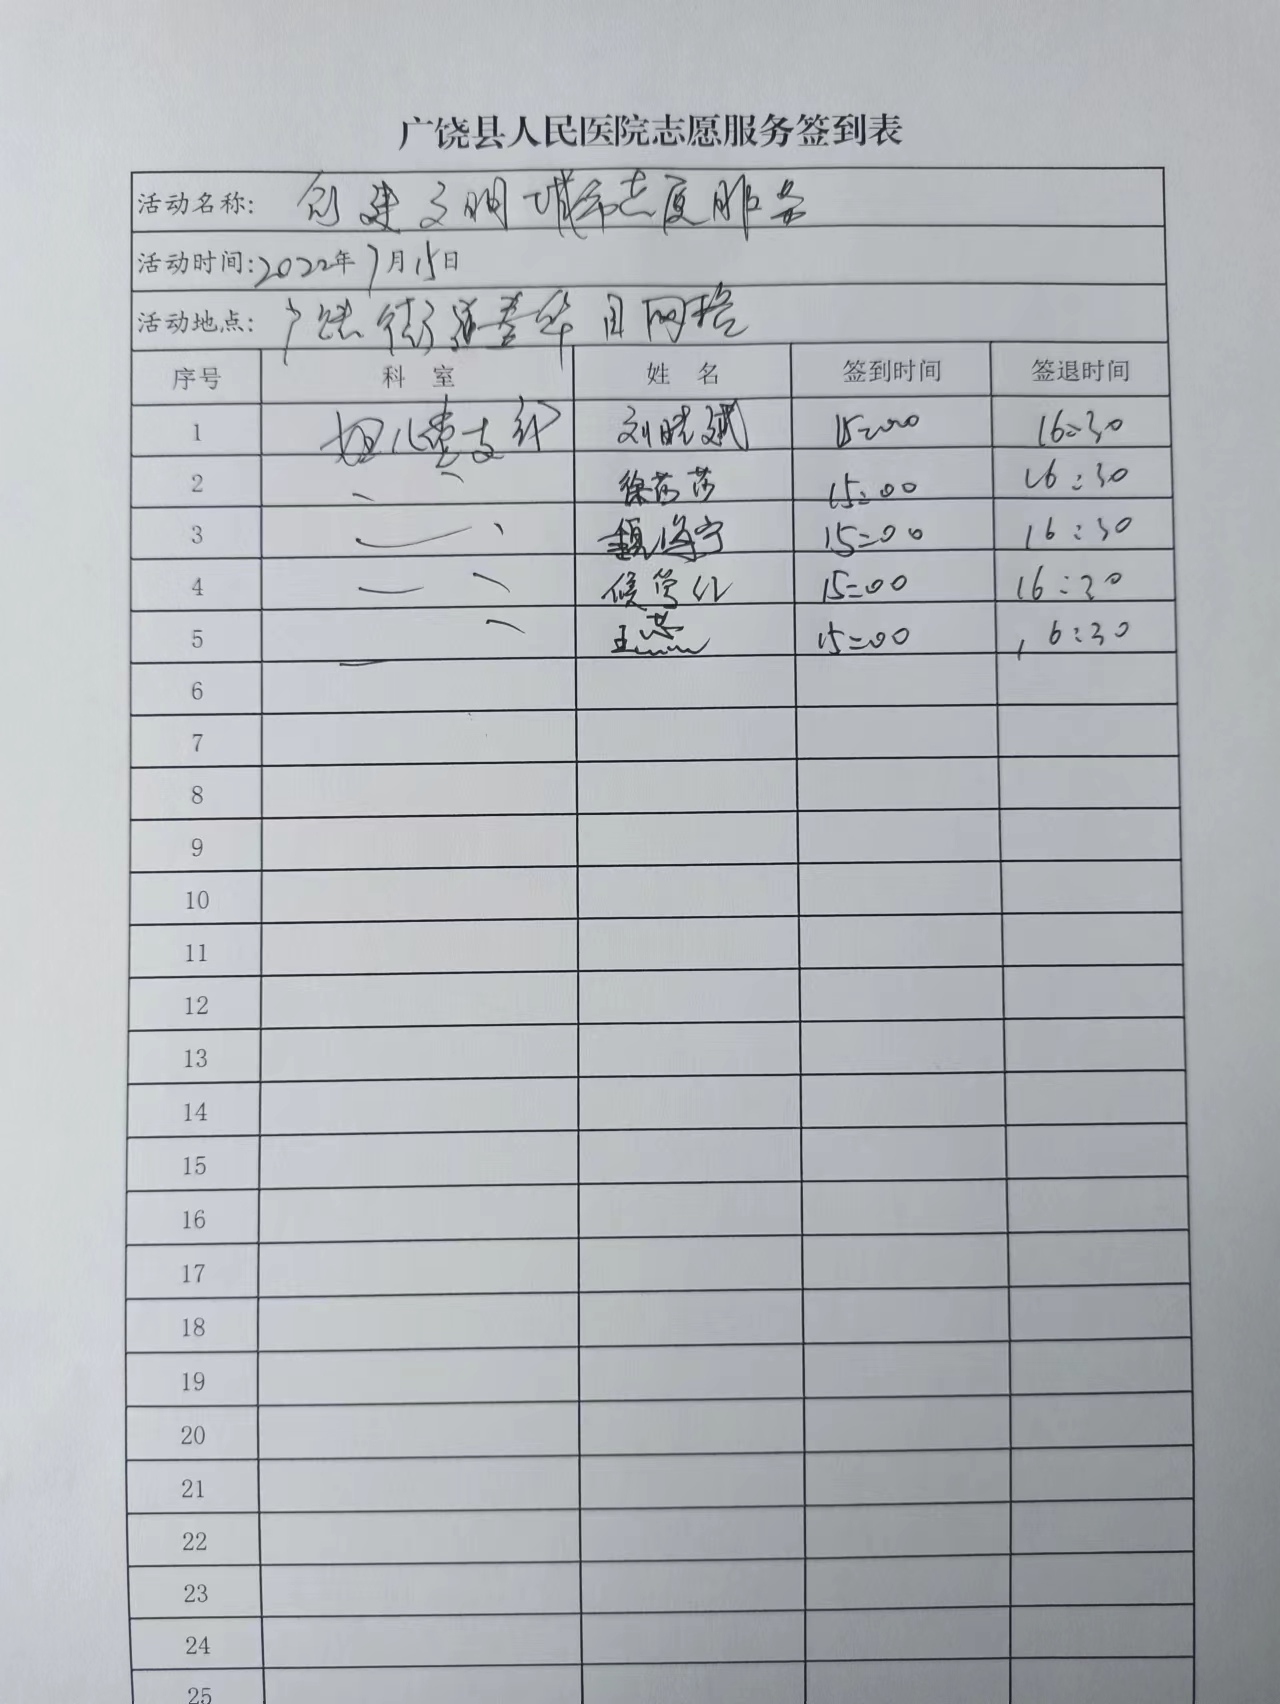 广饶县人民医院志愿服务签到表
活动名称: 创建文明城市志愿服务
活动时间:2022年7月15日
活动地点: 广饶街道 网格
序号 科 室 姓 名 签到时间 签退时间
1 妇儿 支部 刘晓斌 15:00 16:30
2 徐莎莎 15:00 16:30
3 魏海宁 15:00 16:30
4 侯 15:00 16:30
5 王燕 15:00 16:30
6
7
8
9
10
11
12
13
14
15
16
17
18
19
20
21
22
23
24
25